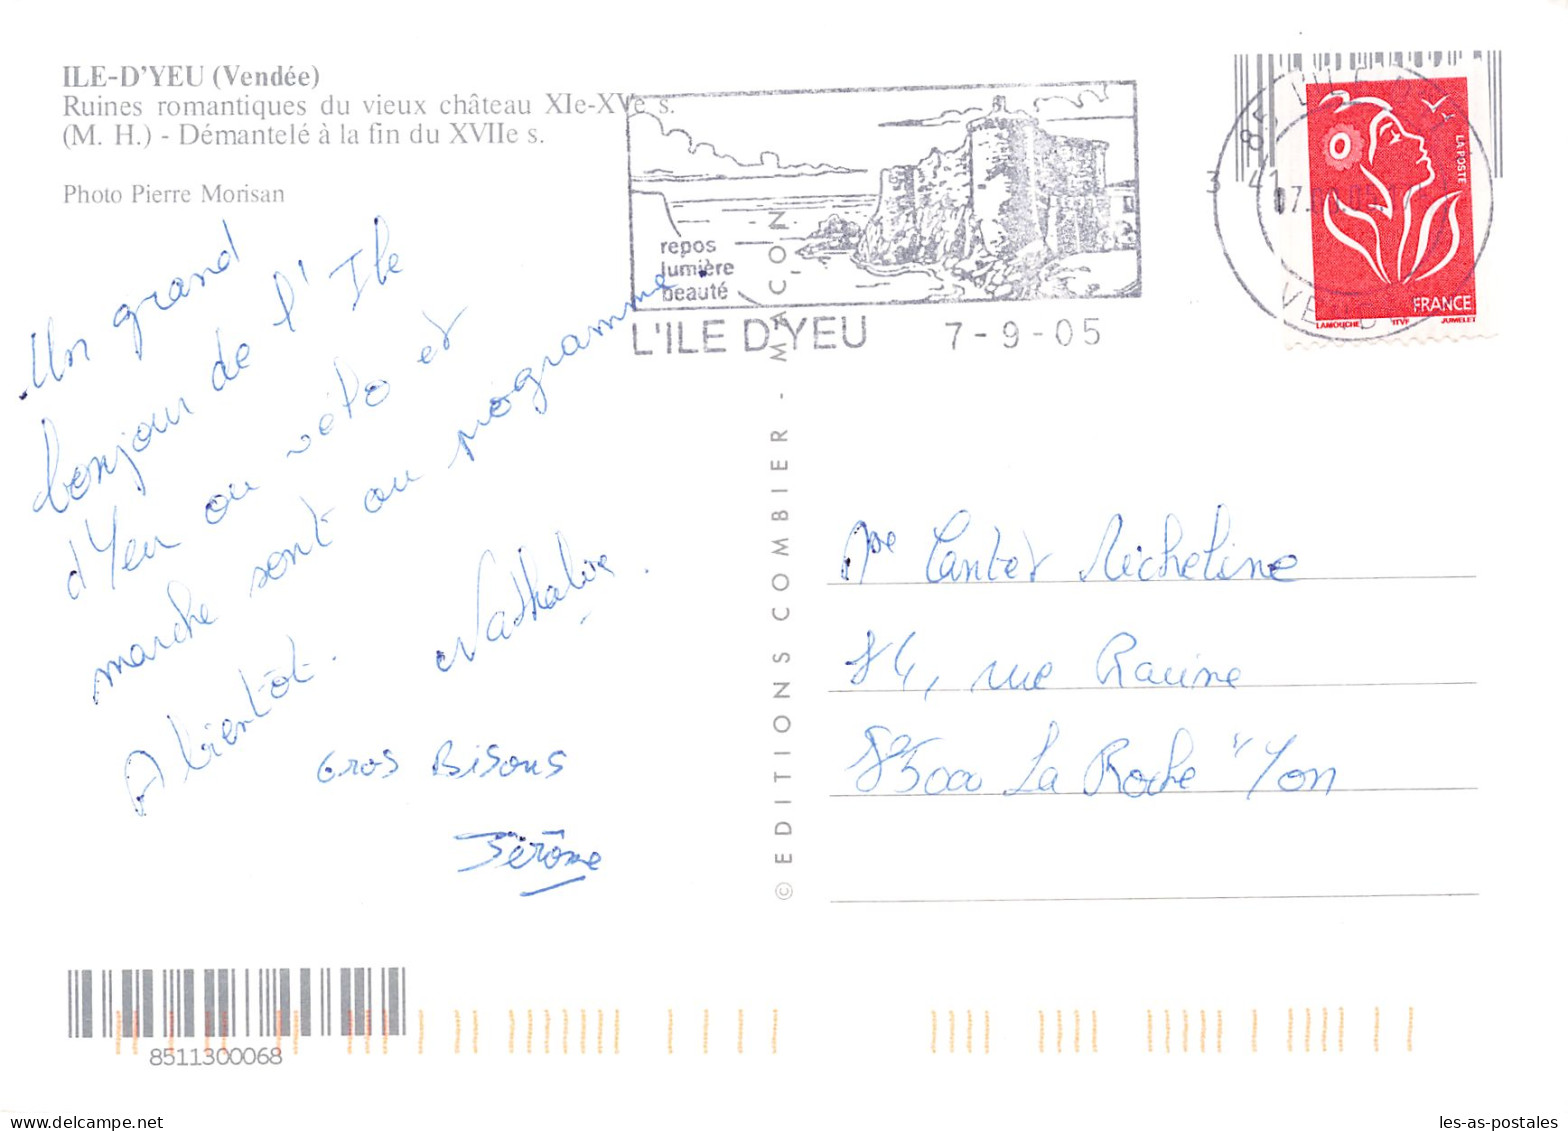 ILE-D'YEU (Vendée)
Ruines romantiques du vieux château XIe-XVe s.
(M. H.) - Démantelé à la fin du XVIIe s.
Photo Pierre Morisan
Un grand
bonjour de l'Ile
d'Yeu ou vélo et
marche sont au programme.
A bientôt. Nathalie.
Gros Bisous
Jérôme
repos
lumière
beauté
L'ILE D'YEU 7-9-05
LA POSTE
FRANCE
LAMOUCHE ITVF JUMELET
© EDITIONS COMBIER - MACON
Micheline
84, rue Racine
85000 La Roche s/Yon
8511300068
les-as-postales